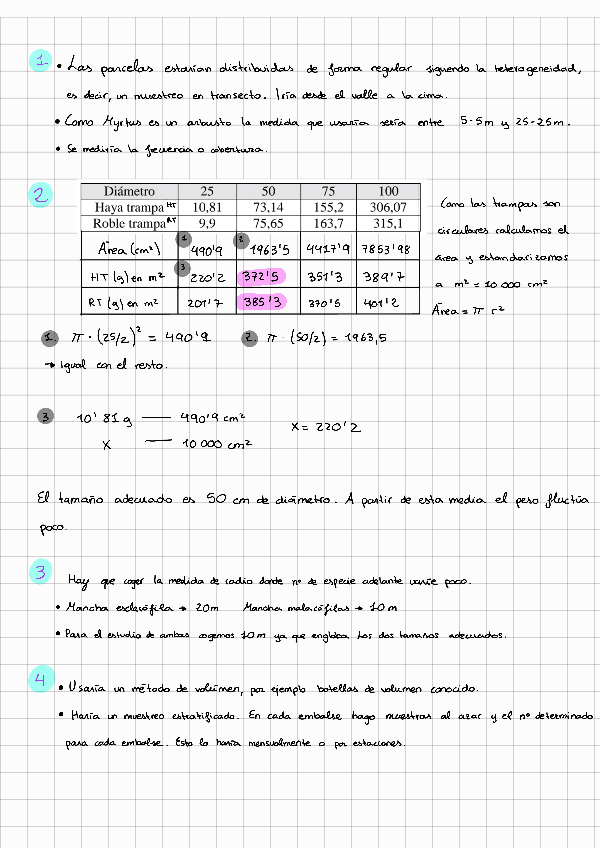 1 • Las parcelas estarían distribuidas de forma regular siguendo la heterogeneidad,
es decir, un muestreo en transecto. Iría desde el valle a la cima.
• Como Myrtus es un arbusto la medida que usaría sería entre 5·5m y 25·25m.
• Se mediría la frecuencia o cobertura.
2
Diámetro 25 50 75 100
Haya trampa HT 10,81 73,14 155,2 306,07
Roble trampa RT 9,9 75,65 163,7 315,1
Área (cm²) 1 490'9 2 1963'5 4417'9 7853'98
HT (g) en m² 3 220'2 372'5 351'3 389'7
RT (g) en m² 201'7 385'3 370'5 401'2
Como las trampas son
circulares calculamos el
área y estandarizamos
a m² = 10 000 cm²
Área = π r²
1. π · (25/2)² = 490'9 2. π · (50/2) = 1963,5
→ Igual con el resto.
3 10'81 g — 490'9 cm² X = 220'2
X — 10 000 cm²
El tamaño adecuado es 50 cm de diámetro. A partir de esta media el peso fluctúa
poco.
3 Hay que coger la medida de radio donde nº de especie adelante varíe poco.
• Mancha esclerófila → 20m Mancha malacófilas → 10m
• Para el estudio de ambas cogemos 10m ya que engloba los dos tamaños adecuados.
4 • Usaría un método de volúmen, por ejemplo botellas de volumen conocido.
• Haría un muestreo estratificado. En cada embalse hago muestras al azar y el nº determinado
para cada embalse. Esto lo haría mensualmente o por estaciones.